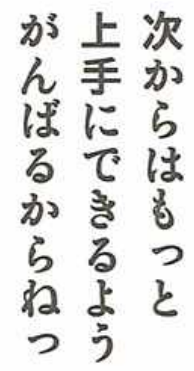 次からはもっと
上手にできるよう
がんばるからねっ